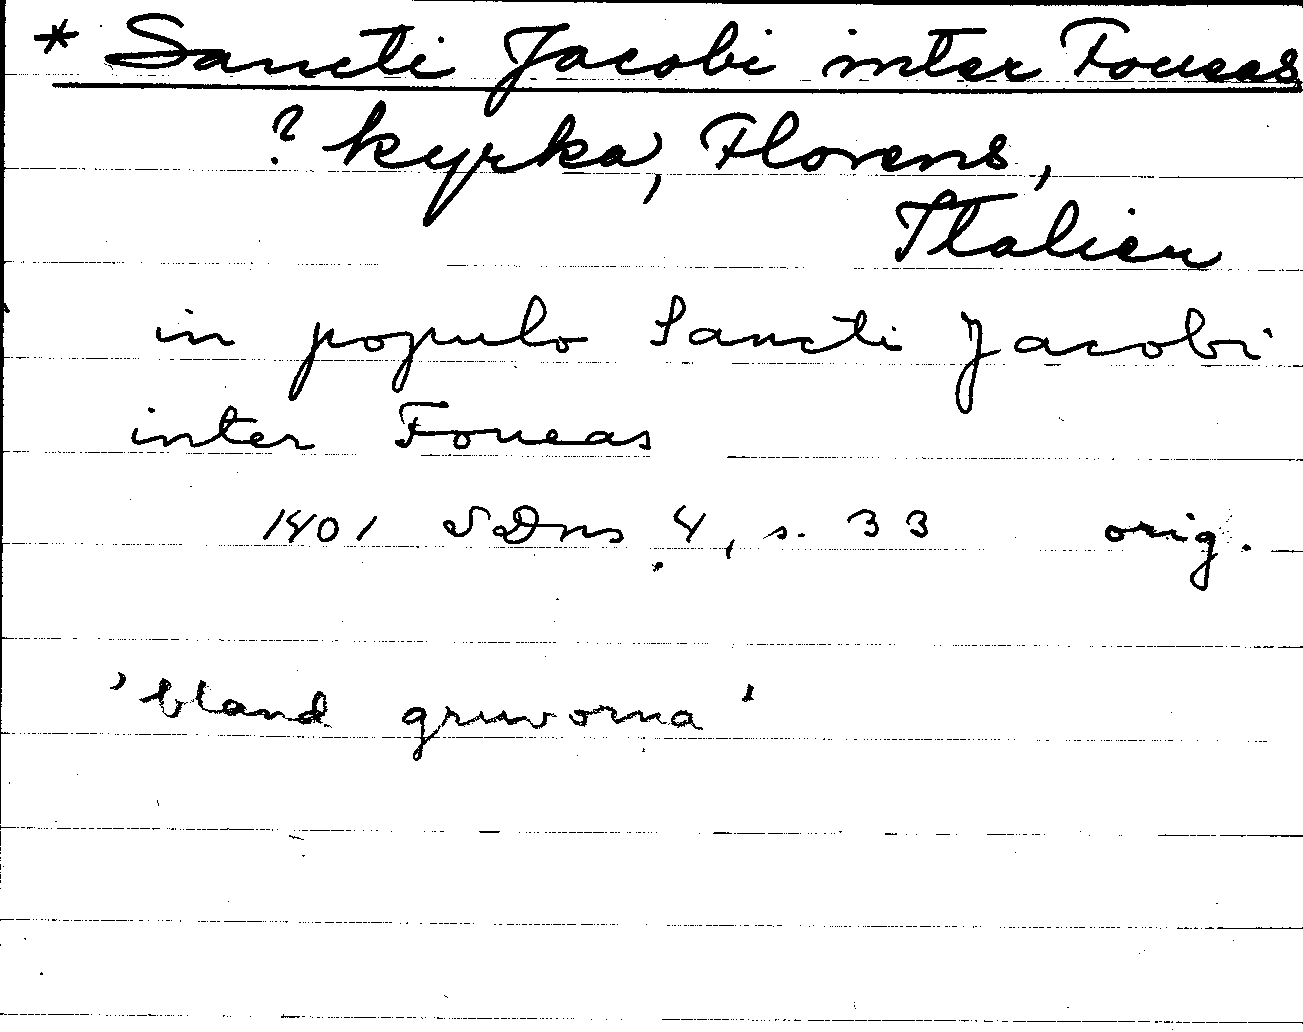 * Sancti Jacobi inter Foueas
? kyrka, Florens,
Italien
in populo Sancti Jacobi
inter Foueas
1401 SDns 4, s. 33 orig.
'bland gruvorna'